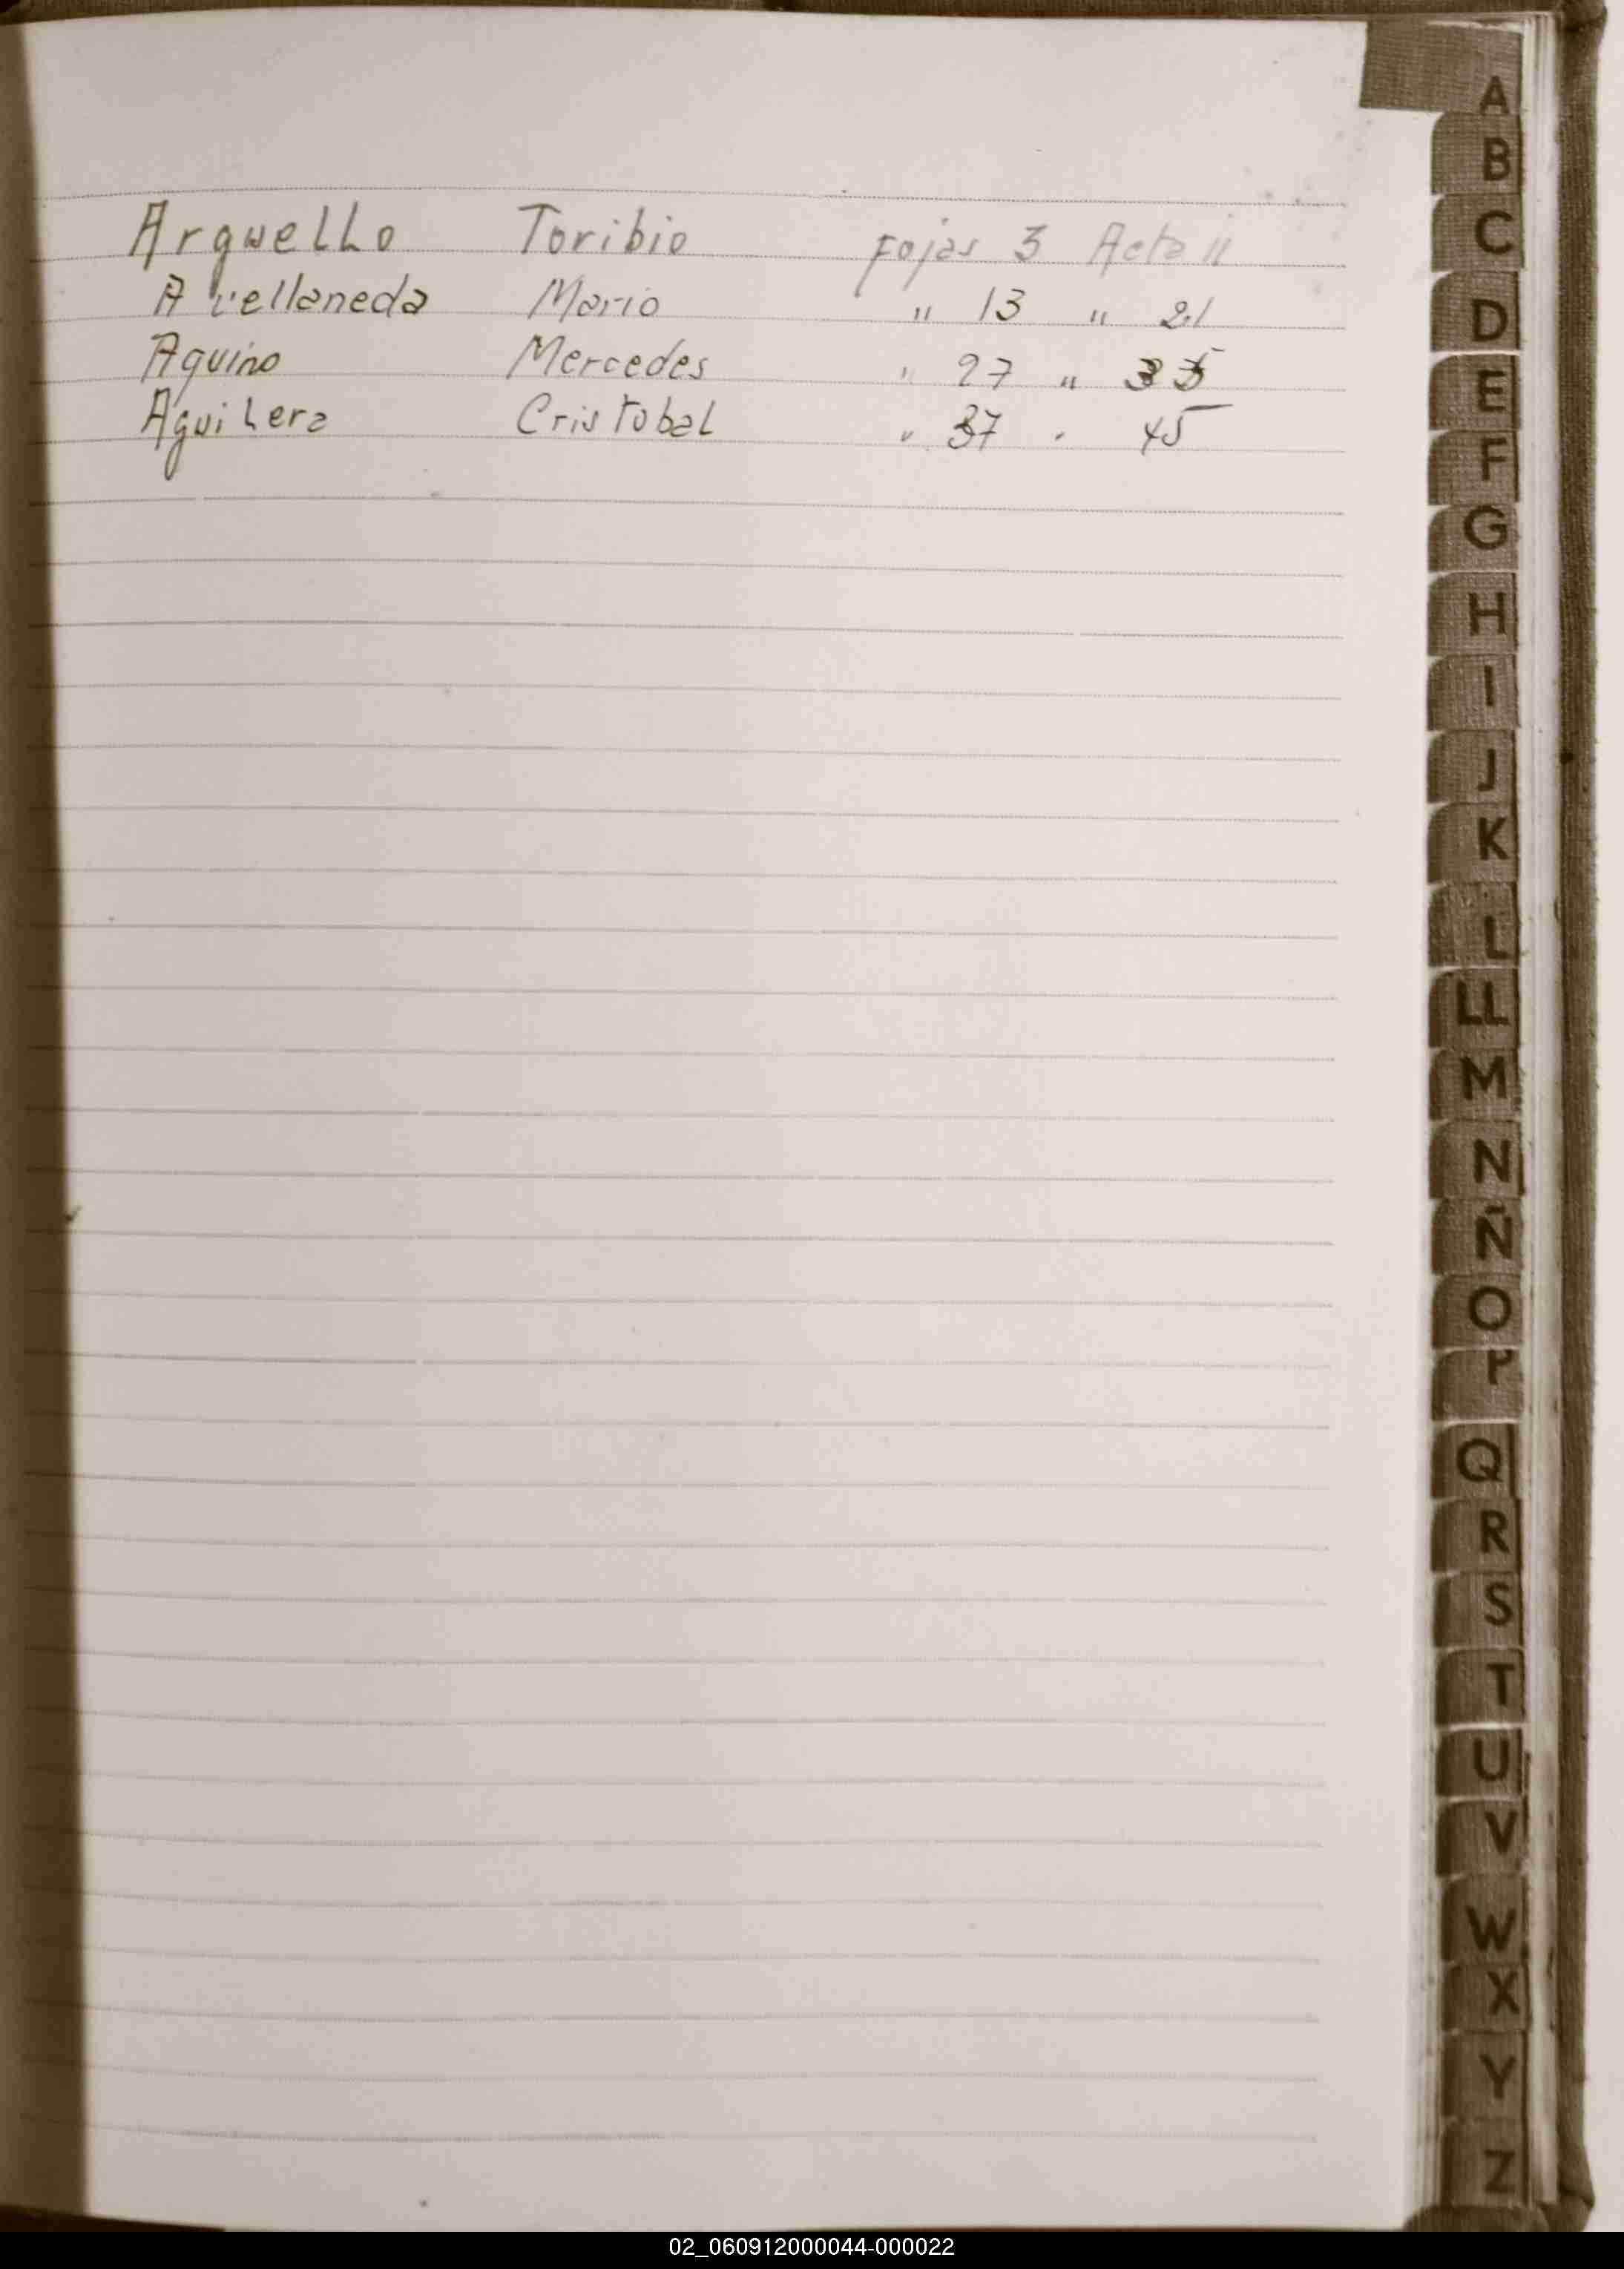 Arguello Toribio Fojas 3 Acta 11
Avellaneda Mario " 13 " 21
Aquino Mercedes " 27 " 35
Aguilera Cristobal " 37 " 45
A
B
C
D
E
F
G
H
I
J
K
L
LL
M
N
Ñ
O
P
Q
R
S
T
U
V
W
X
Y
Z
02_060912000044-000022